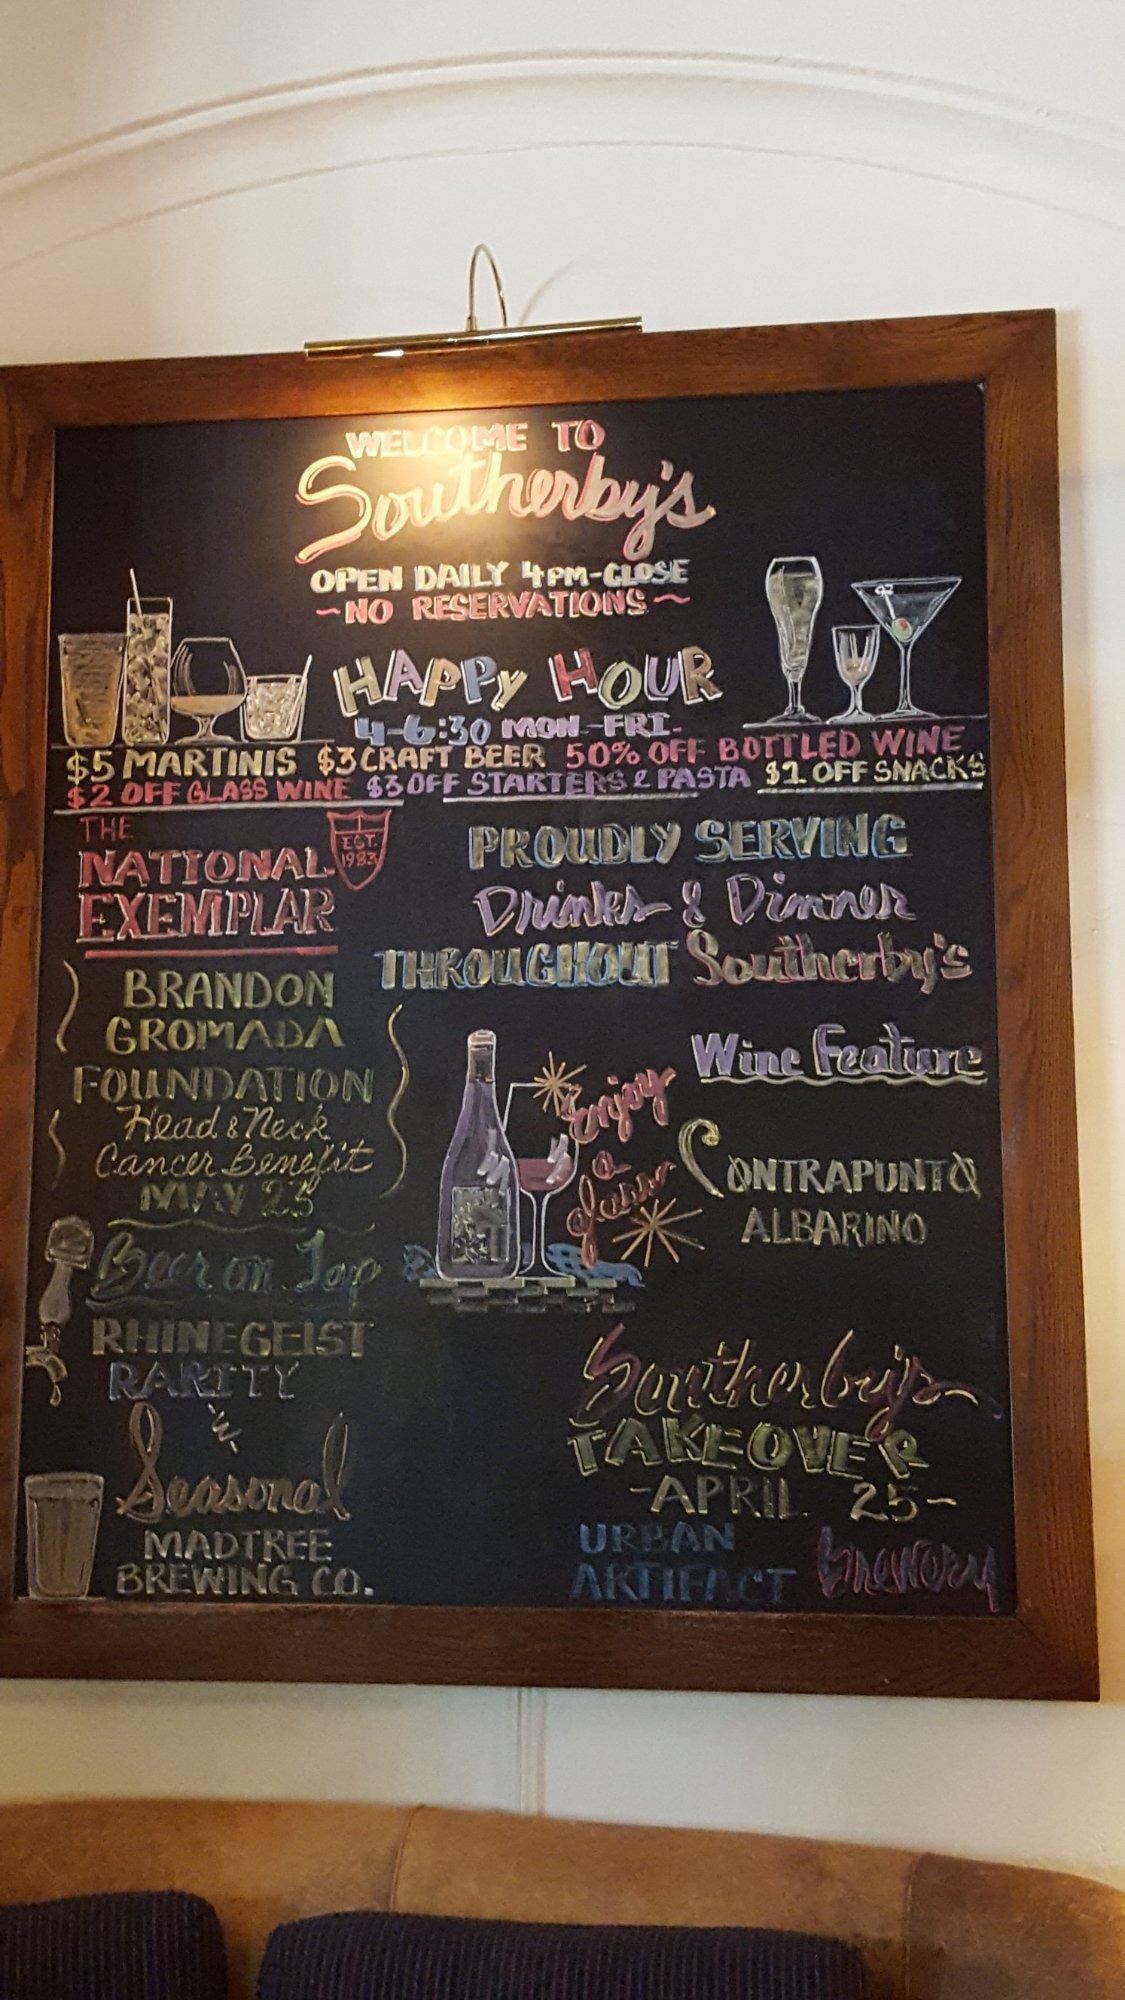 WELCOME TO
Southerby's
OPEN DAILY 4PM-CLOSE
~NO RESERVATIONS~
HAPPY HOUR
4-6:30 MON-FRI.
$5 MARTINIS $3 CRAFT BEER 50% OFF BOTTLED WINE
$2 OFF GLASS WINE $3 OFF STARTERS & PASTA $1 OFF SNACKS
THE
NATIONAL
EXEMPLAR
EST.
1983
PROUDLY SERVING
Drinks & Dinner
THROUGHOUT Southerby's
BRANDON
GROMADA
FOUNDATION
Head & Neck
Cancer Benefit
MAY 23
Beer on Tap
RHINEGEIST
RARITY
Seasonal
MADTREE
BREWING CO.
Enjoy
a
glass
Wine Feature
CONTRAPUNTO
ALBARINO
Southerby's
TAKEOVER
-APRIL 25-
URBAN
ARTIFACT Brewery